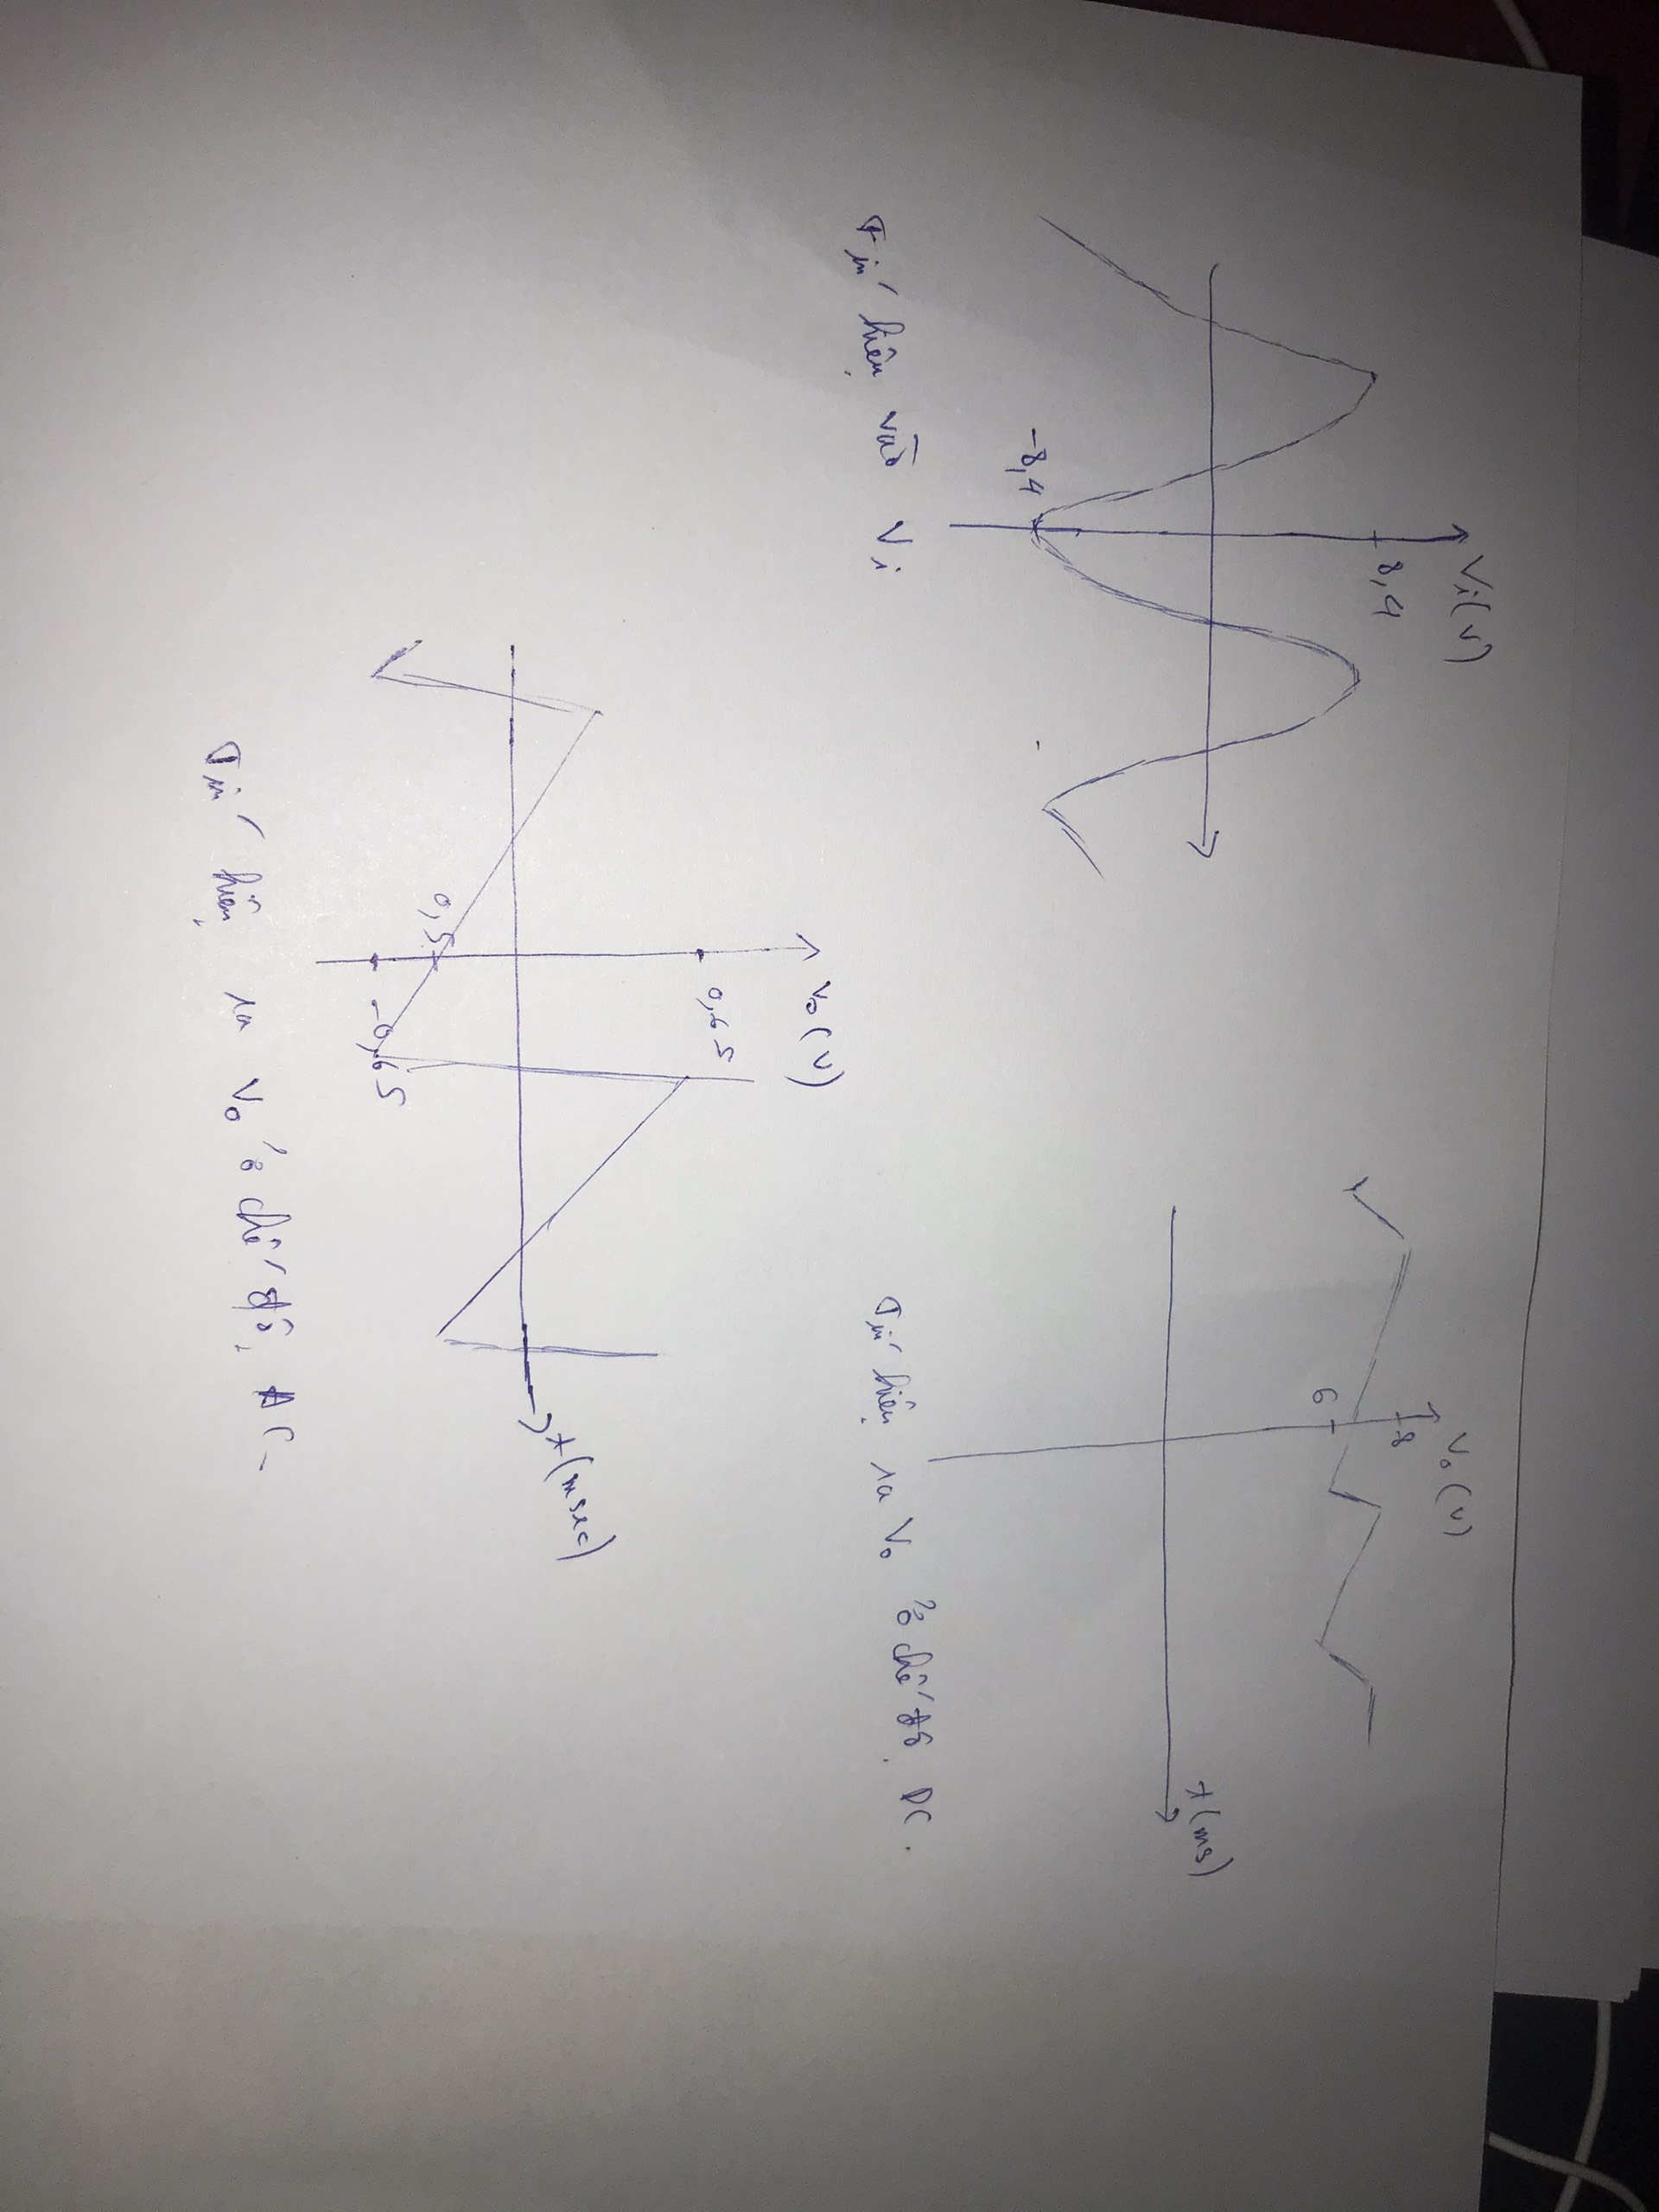 Vi(V)
8,4
-8,4
Tín hiệu vào Vi
Vo(V)
8
6
t(ms)
Tín hiệu ra Vo ở chế độ DC.
Vo(V)
0,65
t(msec)
0,5
-0,65
Tín hiệu ra Vo ở chế độ AC